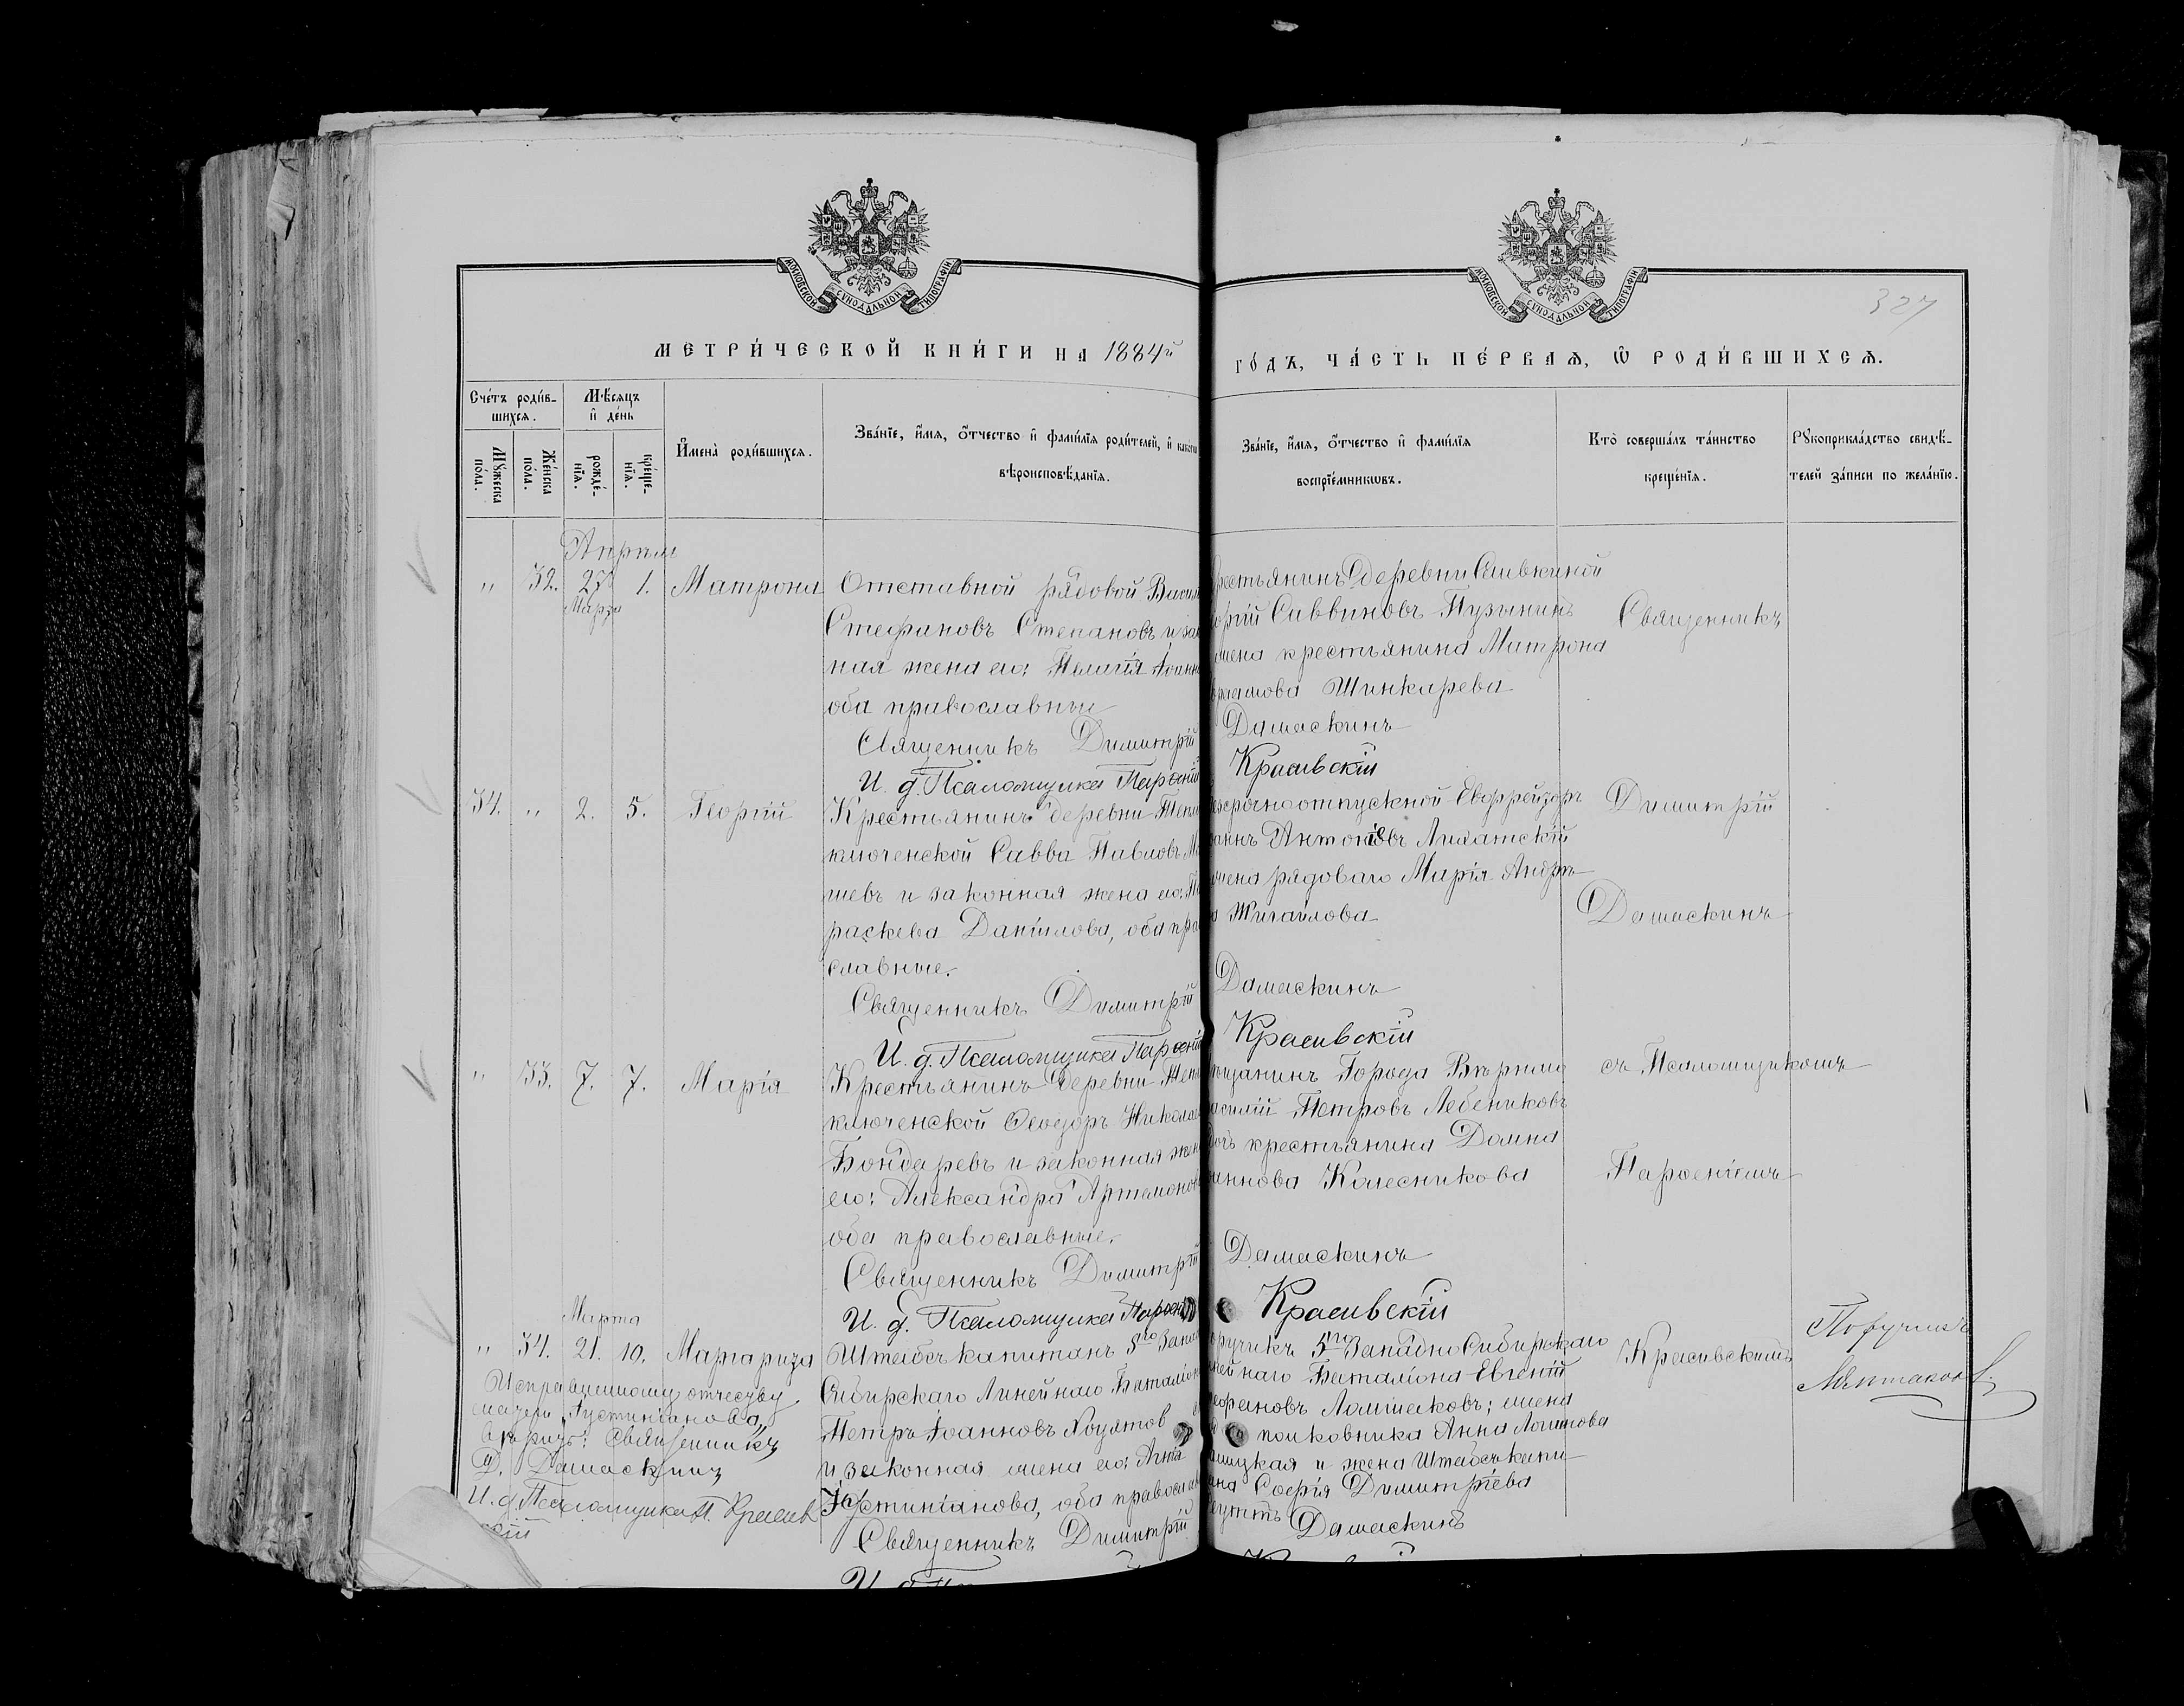 МОСКОВСКОЙ СѴНОДАЛЬНОЙ ТИПОГРАФІИ
МОСКОВСКОЙ СѴНОДАЛЬНОЙ ТИПОГРАФІИ
327
МЕТРИ́ЧЕСКОЙ КНИ́ГИ НА 1884й
ГО́ДЪ, ЧА́СТЬ ПЕ́РВАѦ, Ѡ РОДИ́ВШИХСѦ.
Сче́тъ роди́в-
шихсѧ.
Мꙋ́жеска по́ла.
Же́нска по́ла.
Мѣ́сѧцъ и де́нь
рожде́-нїѧ.
креще́-нїѧ.
И҆мена̀ роди́вшихсѧ.
Зва́нїе, и҆́мѧ, о҆́тчество и҆ фами́лїѧ роди́телей, и҆ како́гѡ
вѣроисповѣ́данїѧ.
Зва́нїе, и҆́мѧ, о҆́тчество и҆ фами́лїѧ
воспрїе́мникѡвъ.
Кто̀ соверша́лъ та́инство
креще́нїѧ.
Рꙋкоприкла́дство свидѣ́-
телей за́писи по жела́нїю.
Апрѣль
" 32. 27 1. Матрона
Марта
Отставной рядовой Васил
Стефановъ Степановъ и зак
ная жена его: Пелагія Іоанн
оба православные
Священникъ Димитрій
И. д. Псаломщика Парѳеній
рестьянинъ деревни Сливкиной
орій Саввиновъ Пузынинъ
жена крестьянина Матрона
Шинкарева
Дамаскинъ
Красивскій
Священникъ
34. " 2. 5. Георгій
Крестьянинъ деревни Тепло
ключенской Савва Павловъ М
шевъ и законная жена его: Па
раскева Даніилова, оба пра
славные.
Священникъ Димитрій
И. д. Псаломщика Парѳеній
срочноотпускной Ефрейторъ
оаннъ Антоніевъ
жена рядоваго Марія Андре
а Жигайлова
Дамаскинъ
Красивскій
Димитрій
Дамаскинъ
" 33. 7. 7. Марія
Крестьянинъ деревни Тепло
ключенской Ѳеодоръ Николае
Бондаревъ и законная жена
его: Александра Артемонова
оба православные.
Священникъ Димитрій
И. д. Псаломщика Парѳеній
щанинъ Города Вѣрнаго
асилій Петровъ Лебениковъ
дочь крестьянина Домна
аннова Колесникова
Дамаскинъ
Красивскій
съ Псаломщикомъ
Парѳеніемъ
Марта
" 34. 21. 10. Маргарита
Штабсъ капитанъ 5го Запад
Сибирскаго Линейнаго Баталіон
Петръ Іоанновъ
и законная жена его: Анна
Устиніанова, оба православ
Священникъ Димитрій
оручикъ 5го Западно Сибирскаго
нейнаго Баталіона Евгеній
ефановъ Ломшаковъ; жена
полковника Анна Логинова
и жена Штабсъ капи
ана Софія Димитріева
Дамаскинъ
Красивскимъ
Поручикъ
Исправленному отчеству
матери Іустиніанова,
вѣрить: Священникъ
Д. Дамаскинъ
И. д. Псаломщика П. Красив
скій